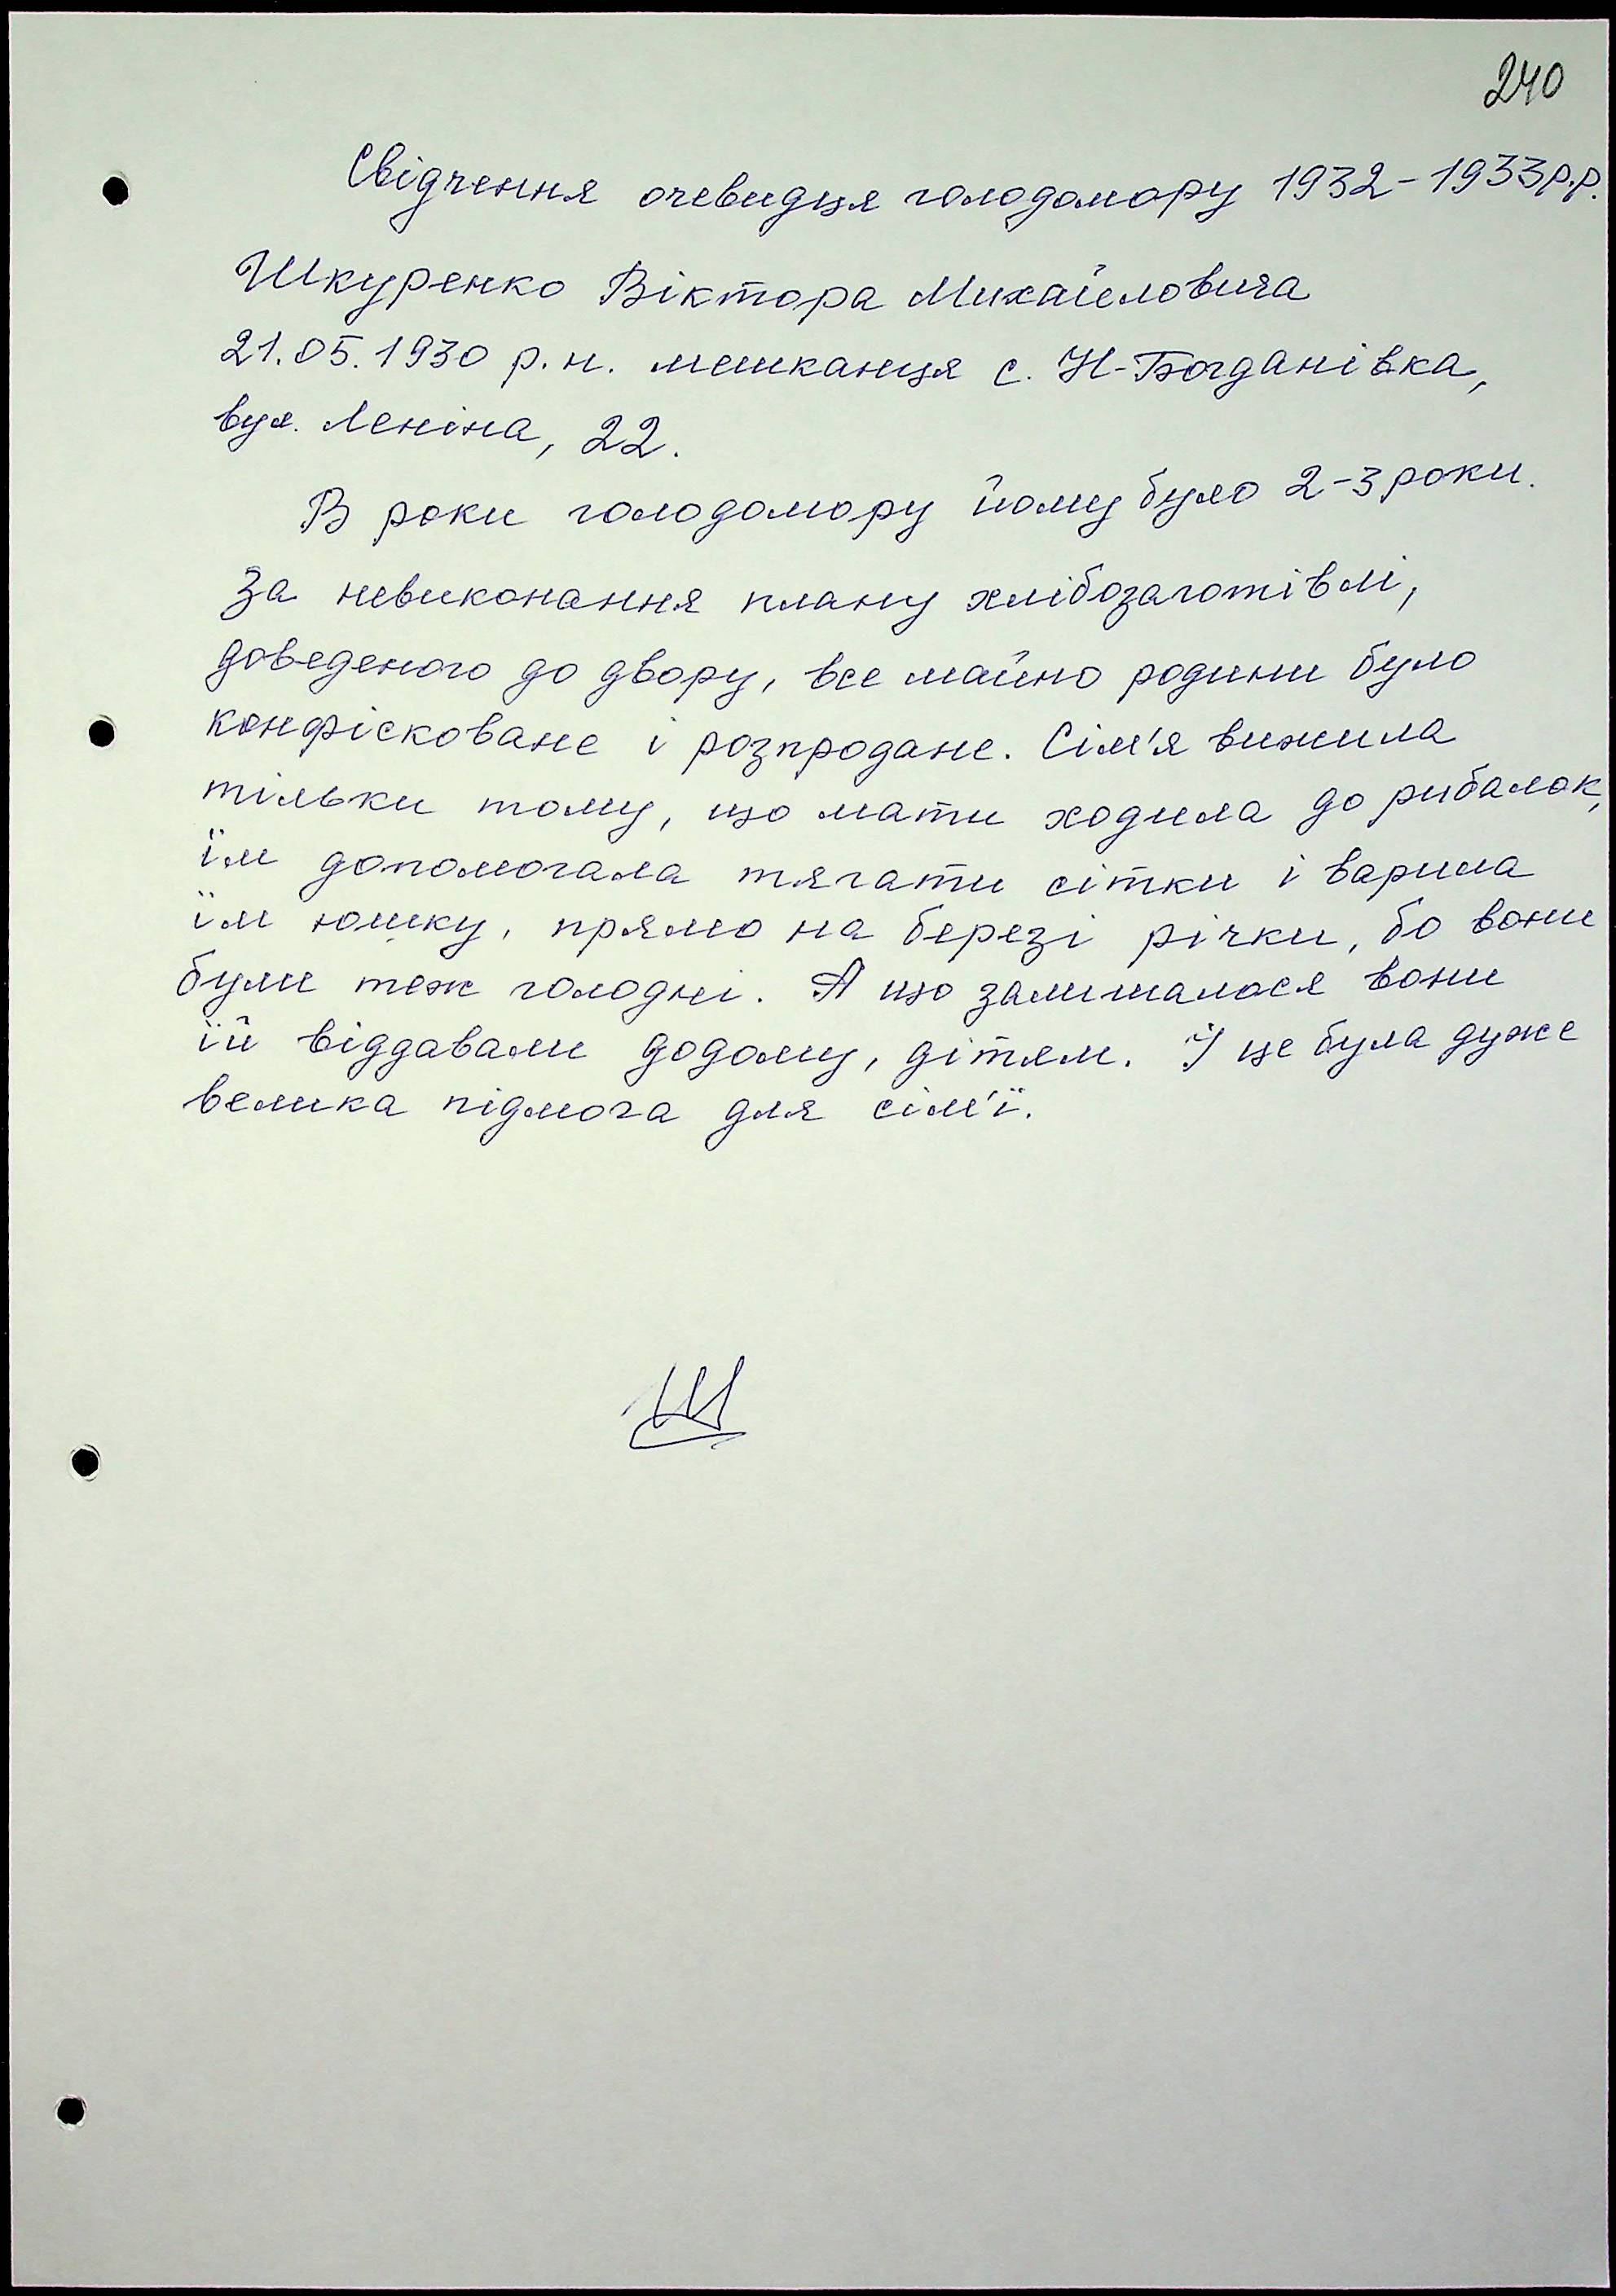 240
Свідчення очевидця голодомору 1932-1933р.р.
Шкуренко Віктора Михайловича
21.05.1930 р.н. мешканця с. Н-Богданівка,
вул. Леніна, 22.
В роки голодомору йому було 2-3 роки.
За невиконання плану хлібозаготівлі,
доведеного до двору, все майно родини було
конфісковане і розпродане. Сім'я вижила
тільки тому, що мати ходила до рибалок,
їм допомогала тягати сітки і варила
їм юшку, прямо на березі річки, бо вони
були теж голодні. А що залишалося вони
їй віддавали додому, дітям. І це була дуже
велика підмога для сім'ї.